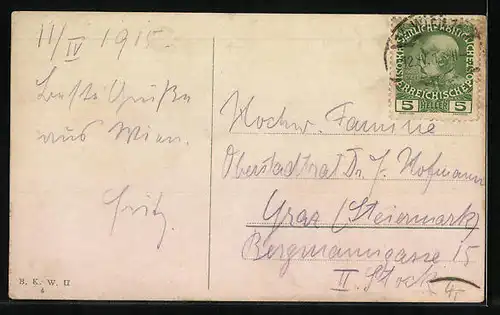 11/IV 1915.
Beste Grüße
aus Wien.
Fritz.
B. K. W. II
WIEN
KAISERLICHE KÖNIGLICHE
ÖSTERREICHISCHE POST
5 HELLER 5
Hochw. Familie
Oberstadtrat Dr. J. Hofmann
Graz (Steiermark)
Bergmanngasse 15
II. Stock